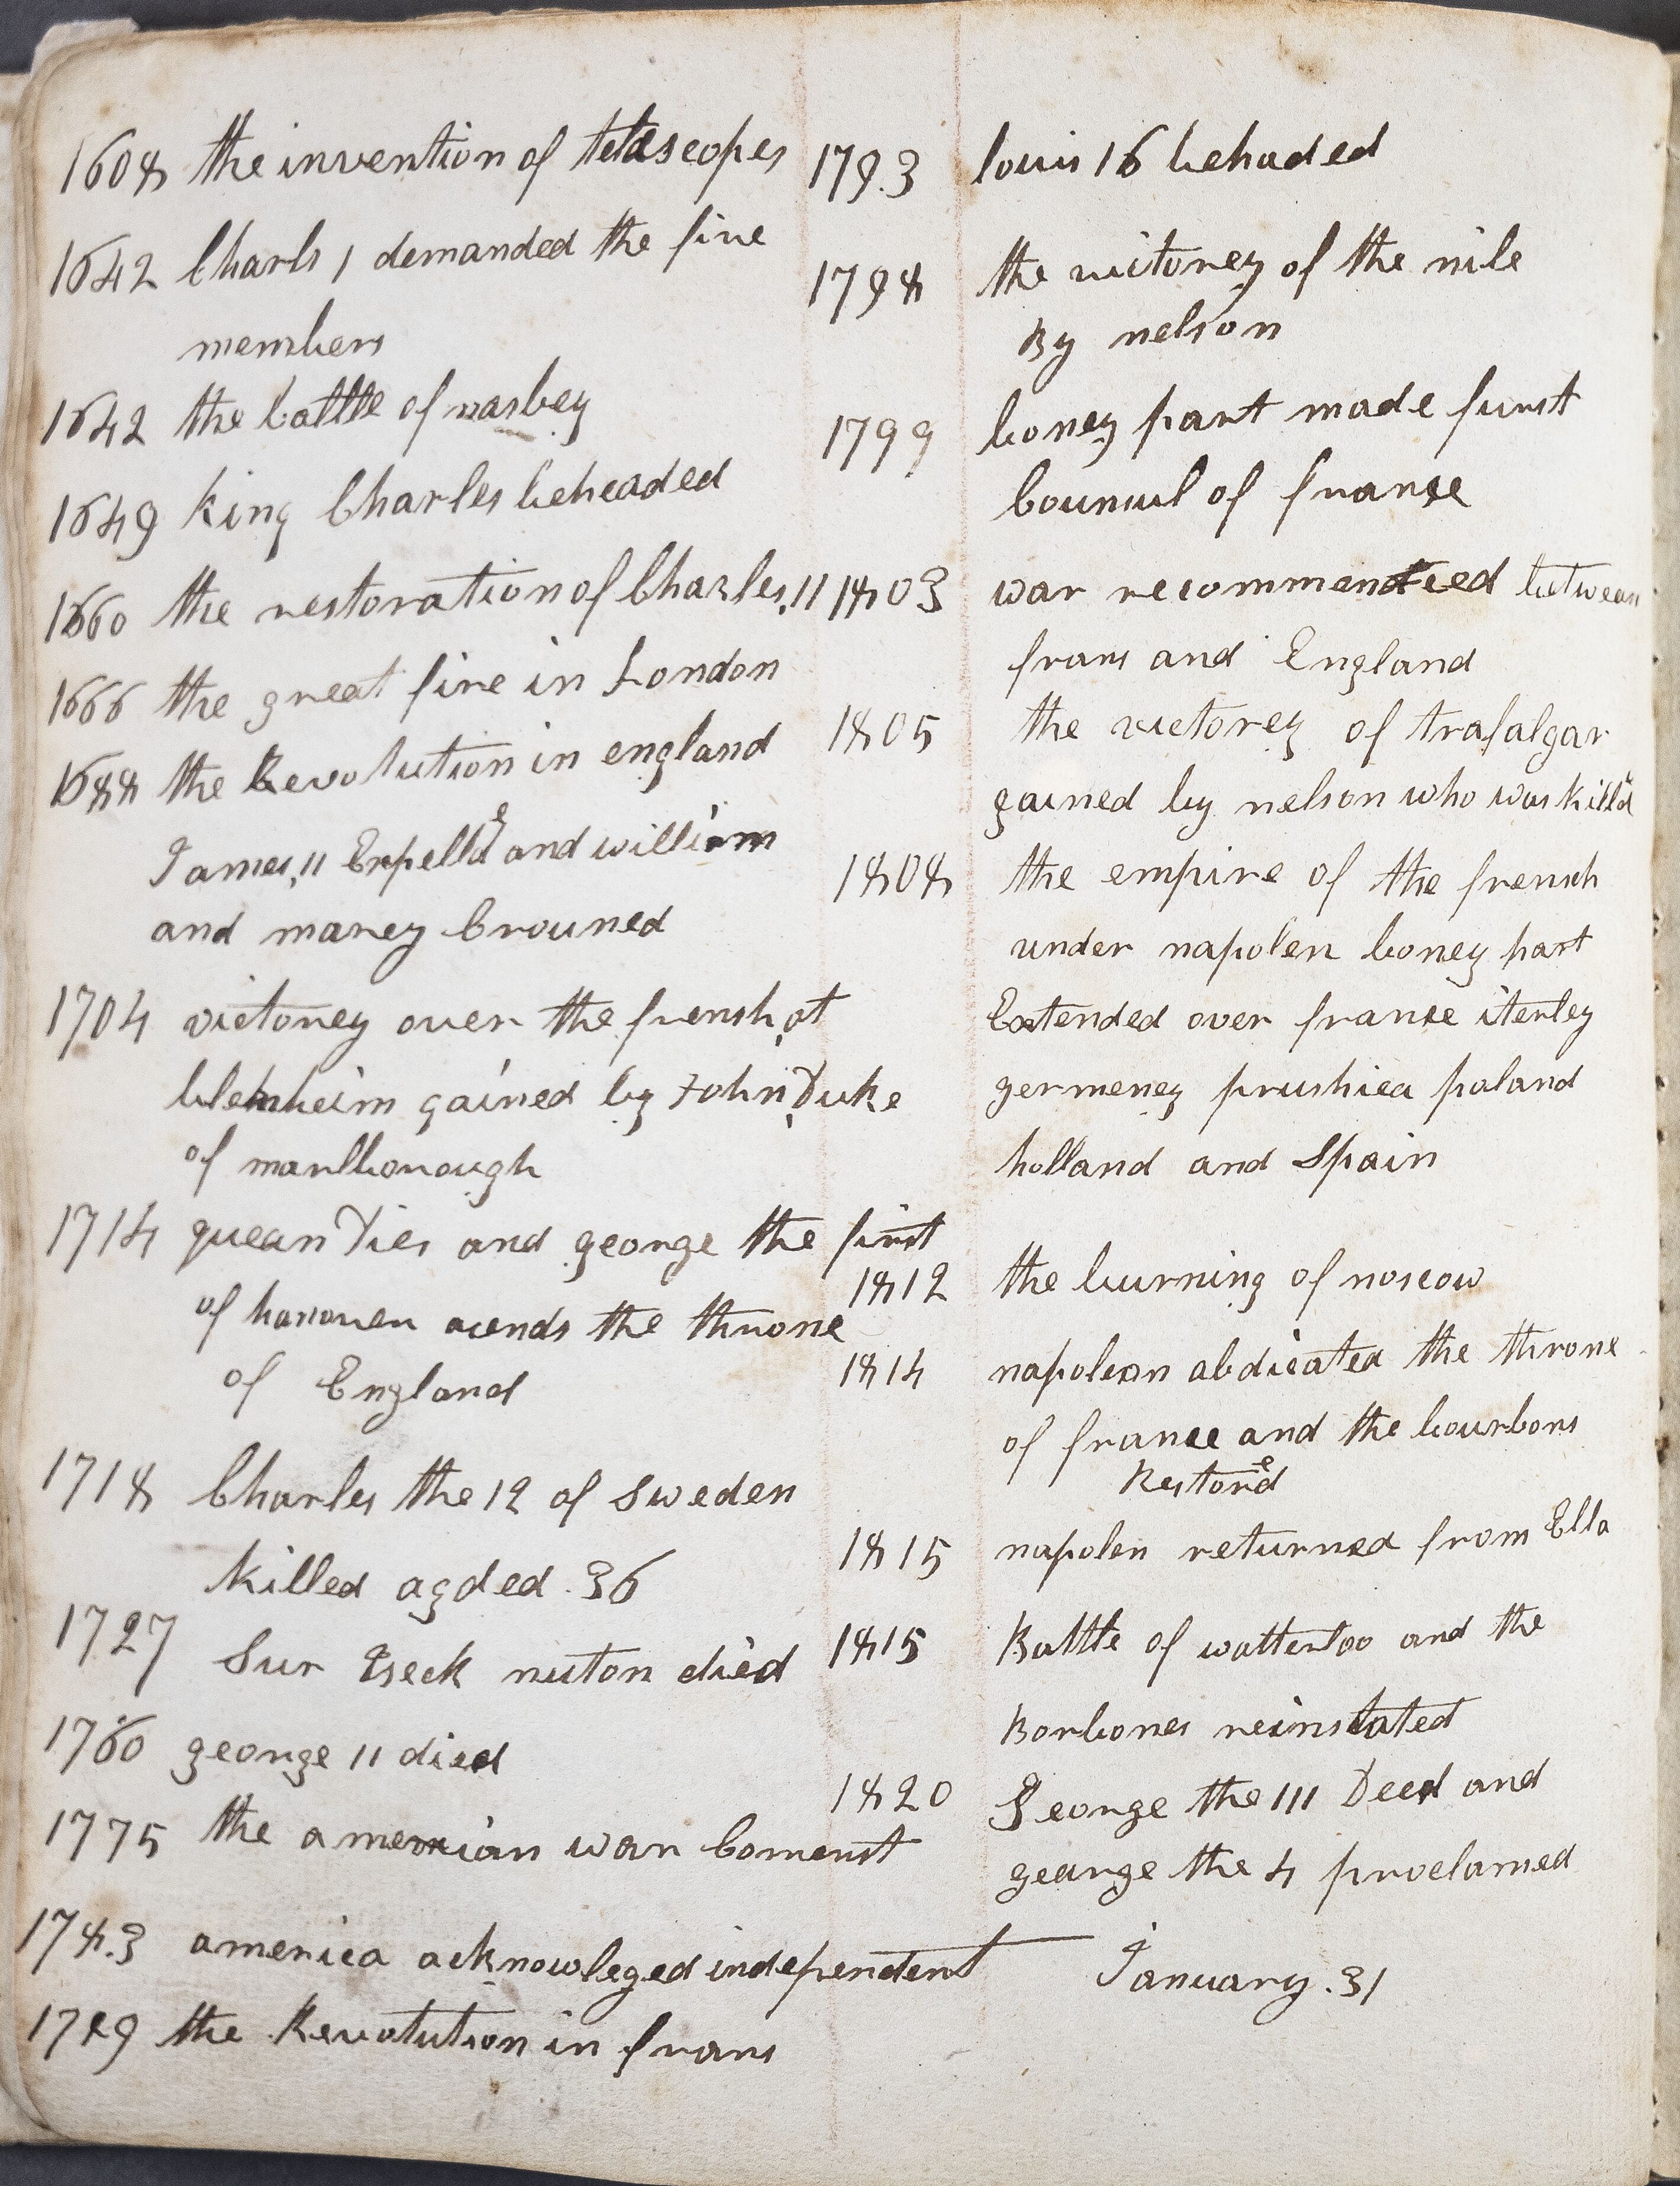 1608 the invention of telescopes
1642 Charls 1 demanded the five
members
1642 the battle of nasbey
1649 King Charles beheaded
1660 the restoration of Charles, 11
1666 the great fire in London
1688 the Revolution in england
James, 11 Expelled and william
and marey Crouned
1704 victorey over the french, at
blenheim gained by John, Duke
of marlborough
1714 quean Dies and george the first
of hanover acends the throne
of England
1718 Charles the 12 of Sweden
killed agded .36
1727 Sur Iseck nuton died
1760 george 11 died
1775 the amerrican war Comenst
178.3 america acknowleged independent
1789 the Revolution in frans
179.3 louis 16 behaded
1798 the victorey of the nile
By nelson
1799 boney part made furst
Counsul of franse
1803 war recommended betwean
frans and England
1805 the victorey of trafalgar
gained by nelson who was killed
1808 the empire of the french
under napolen boney part
Extended over france iterley
germeney prushiea poland
holland and Spain
1812 the burning of moscow
1814 napoleon abdicated the throne
of france and the bourbons
Restored
1815 napolen returned from Elba
1815 Battle of watterloo and the
Borbones reinstated
1820 George the 111 Deed and
gearge the 4 proclamed
January .31